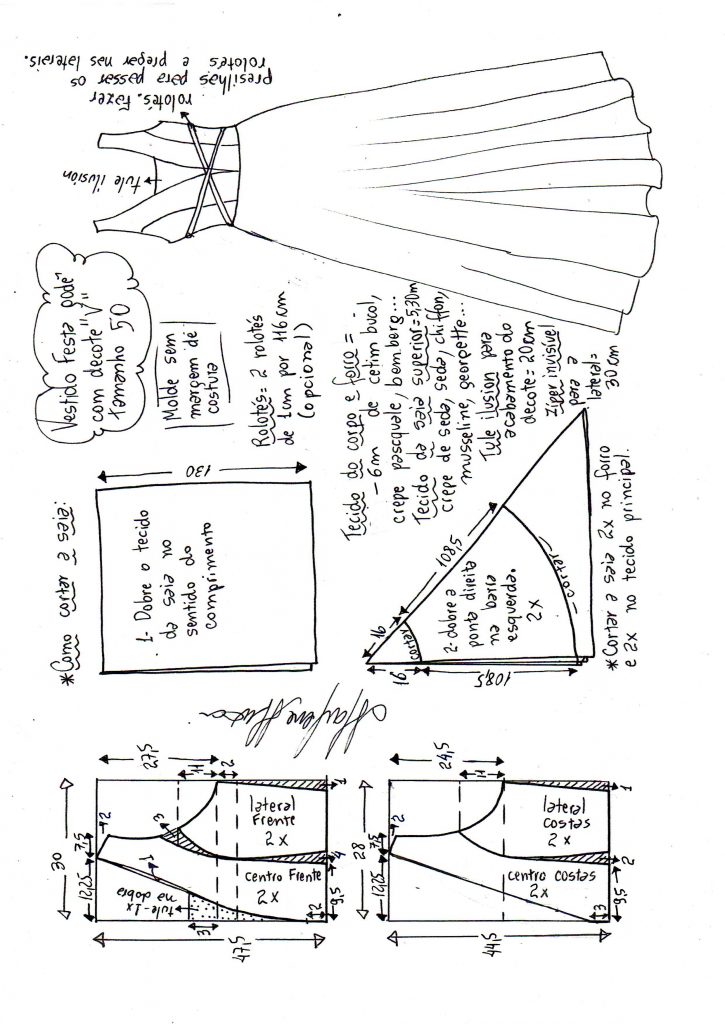 Vestido Festa godê
com decote "V"
Tamanho 50
Molde sem
margem de
costura
Rolotês = 2 rolotês
de 1cm por 116cm
(opcional)
rolotês. Fazer
presilhas para passar os
rolotês e pregar nas laterais.
tule ilusión
Tecido do corpo e forro =
- 6m de cetim bucol,
crepe pasquale, bemberg...
Tecido da saia superior = 5,30m
crepe de seda, seda, chiffon,
musseline, georgette...
Tule ilusion para
acabamento do
decote = 20cm
Zíper invisível
para a
lateral =
30cm
*Como cortar a saia:
130
1- Dobre o tecido
da saia no
sentido do
comprimento
16
108,5
cortar
2- dobre a
ponta direita
na barra
esquerda.
2x
cortar
16
108,5
*Cortar a saia 2x no forro
e 2x no tecido principal.
30
12,25
7,5
2
27,5
11
2
3
1
lateral
Frente
2x
centro Frente
2x
tule-1x
na dobra
3
2
9,5
4
1
47,5
28
12,25
7,5
2
24,5
11
lateral
costas
2x
centro costas
2x
3
9,5
2
1
44,5